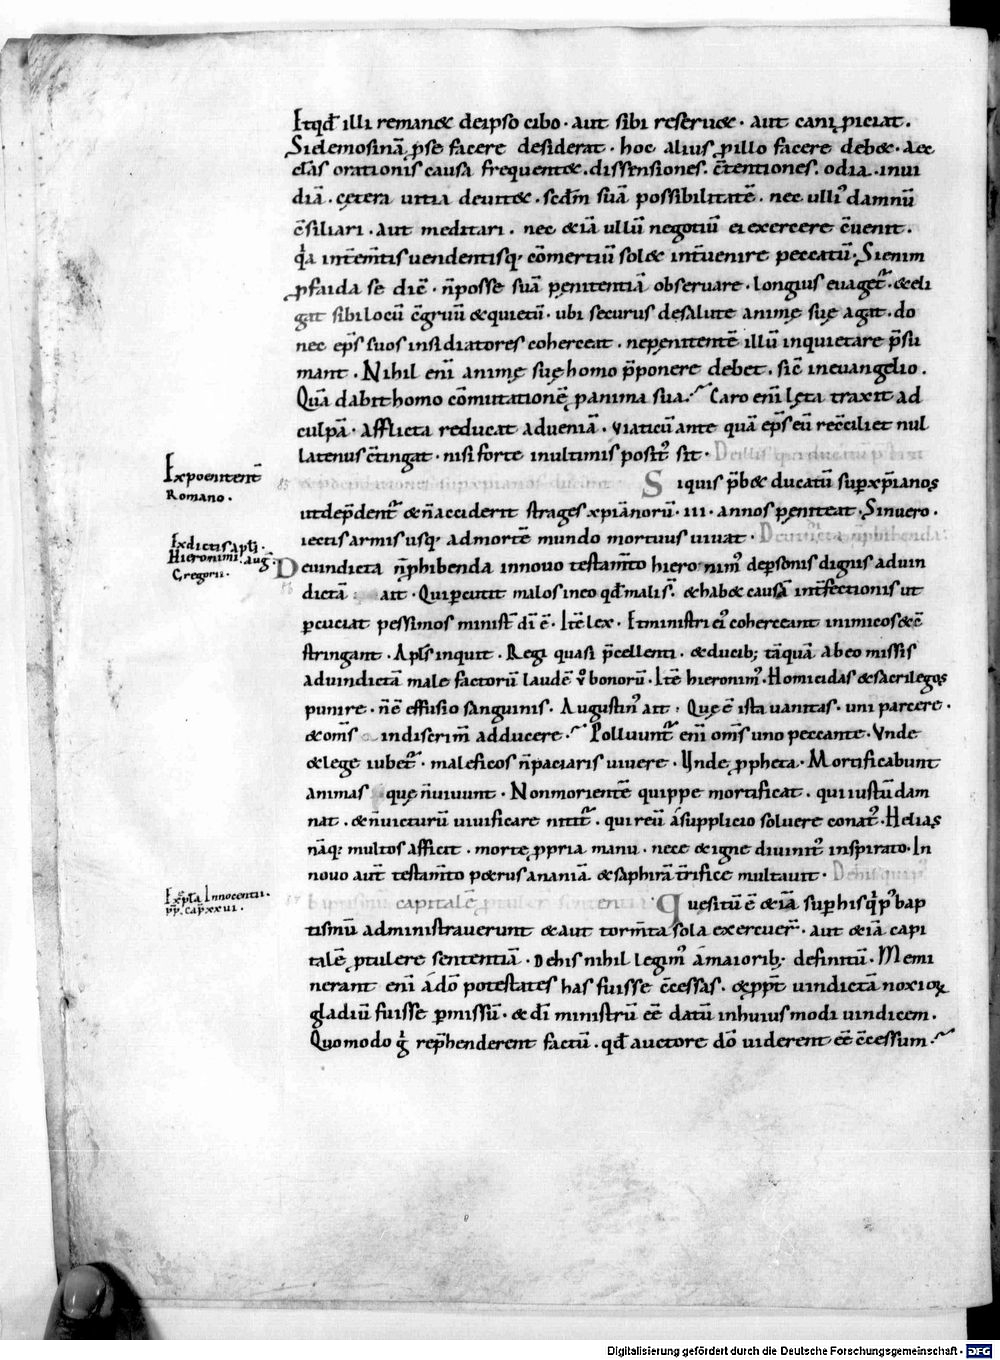 Et qd̄ illi remanet de ipso cibo · aut sibi reseruet · aut cani ꝓiciat ·
Si elemosinā ꝑ se facere desiderat · hoc alius ꝓ illo facere debet · Aec
clas orationis causa frequentet · dissensiones · c̄tentiones · odia · inui
diā · cetera uitia deuitet · scdm̄ suā possibilitatē · nec ulli᷒ damnū
c̄siliari · Aut meditari · nec etiā ullū negotiū ei exercere c̄uenit ·
q̇a int̄ em̄tis uendentisq; cōmertiū solet int̄uenire peccatū · Si enim
ꝓ faida se dic̄ · n̄ posse suā penitentiā obseruare · longius euaget᷑ · et eli
gat sibi locū c̄gruū et quietū · ubi securus de salute animę suę agat · do
nec ep̄s suos insidiatores coherceat · ne penitentē illū inquietare p̄su
mant · Nihil eni̅ animę suę homo p̄ponere debet · sic̄ in euangelio ·
Quā dabit homo cōmutationē ꝓ anima sua · Caro eni̅ lęta traxit ad
culpā · Afflicta reducat ad ueniā · Viaticū ante quā ep̄s eū rec̄ciliet nul
latenus c̄tingat · nisi forte in ultimis posit᷒ sit ·
Ex poenitent̄
Romano ·
Siquis p̄bet ducatū sup̄ xp̄ianos
ut dep̄dent᷑ et n̄ acciderit strages xp̄ianorū · III · annos peniteat · Sin uero ·
iectis armis usq; ad mortē mundo mortuus uiuat ·
Ex dictis apl̄i ·
Hieronimi · Aug̅
Gregorii ·
De uindicta n̄ ꝓhibenda in nouo testam̄to hieronim᷒ de ꝑsonis dignis ad uin
dictā ait · Qui ꝑcutit malos in eo qd̄ mali s̄ · et habet causā int̄fectionis ut
ꝑcuciat pessimos minist̄ di̅ ē · Itē lex · Et ministri ei᷒ coherceant inimicos et c̄
stringant · Apl̄s inquit · Regi quasi p̄cellenti · et ducib; tāquā ab eo missis
ad uindictā malefactorū laudē v̊ bonorū · Itē hieronim᷒ · Homicidas et sacrilegos
punire · n̄ ē effusio sanguinis · Augustin᷒ ait · Quę ē ista uanitas · uni parcere ·
et om̄s in discrim̄ adducere · Polluunt᷑ eni̅ om̄s uno peccante · Vnde
et lege iubet᷑ · maleficos n̄ paciaris uiuere · Vnde ꝓpheta · Mortificabunt
animas quę n̄ uiuunt · Non morientē quippe mortificat · qui iustū dam
nat · et n̄ uicturū uiuificare nitit᷑ · qui reū a supplicio soluere conat᷑ · Helias
nāq; multos afficit · morte ꝓpria manu · nece et igne diuinit᷒ inspirato · In
nouo aut̄ testam̄to petrus ananiā et saphirā t̄rifice multauit ·
Ex ep̄la Innocentii ·
pp̄ · cap̄ xxvi ·
Quesitū ē etiā sup̄ his q̇ p᷒ bap
tismū administrauerunt et aut torm̄ta sola exercuer̄ · aut etiā capi
talē ꝓtulere sententiā · De his nihil legim᷒ a maiorib; definitū · Memi
nerant eni̅ a dō potestates has fuisse c̄cessas · et ꝓpt̄ uindictā noxioꝝ
gladiū fuisse ꝑmissū · et di̅ ministrū eē datū in huiusmodi uindicem ·
Quomodo g̊ rep̄henderent factū · qd̄ auctore dō uiderent eē c̄cessum ·
Digitalisierung gefördert durch die Deutsche Forschungsgemeinschaft - DFG